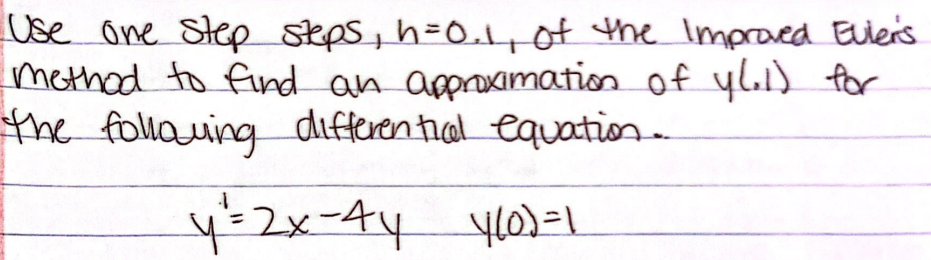 Use one step steps, h=0.1, of the Improved Euler's
method to find an approximation of y(.1) for
the following differential equation.
y'=2x-4y y(0)=1